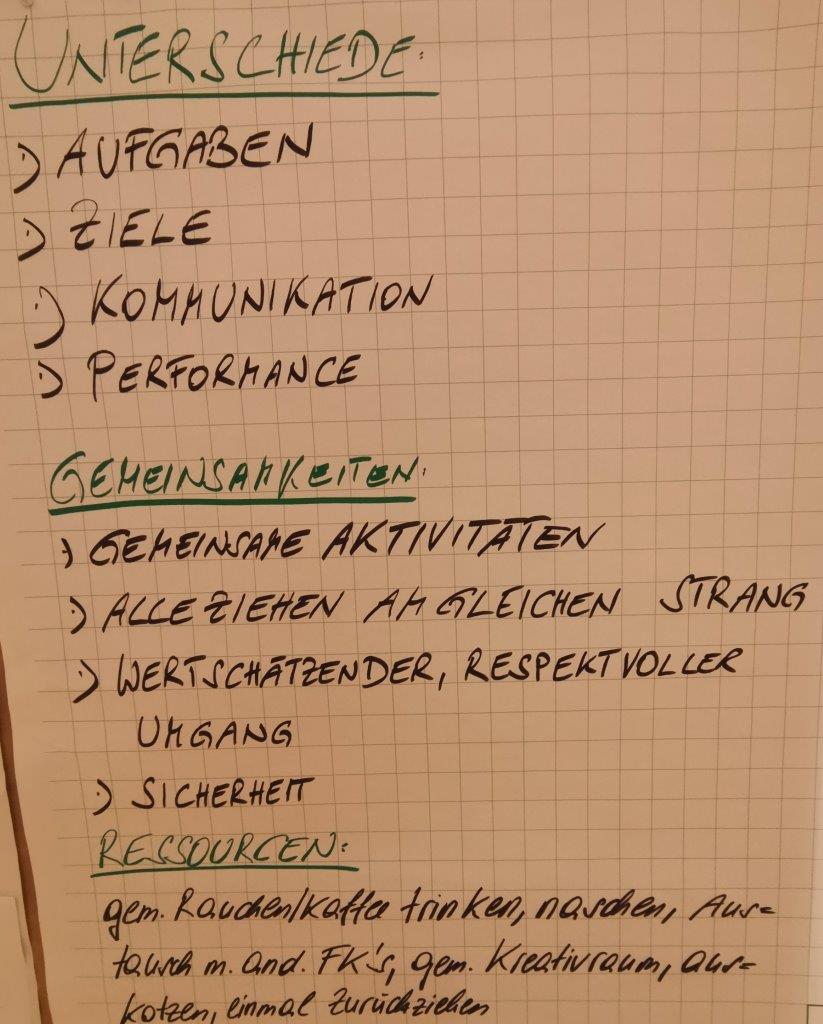 UNTERSCHIEDE:
:) AUFGABEN
:) ZIELE
:) KOMMUNIKATION
:) PERFORMANCE
GEMEINSAMKEITEN:
:) GEMEINSAME AKTIVITÄTEN
:) ALLE ZIEHEN AM GLEICHEN STRANG
:) WERTSCHÄTZENDER, RESPEKTVOLLER
UMGANG
:) SICHERHEIT
RESSOURCEN:
gem. Rauchen/Kaffee trinken, naschen, Aus=
tausch m. and. FK's, gem. Kreativraum, aus=
kotzen, einmal zurückziehen